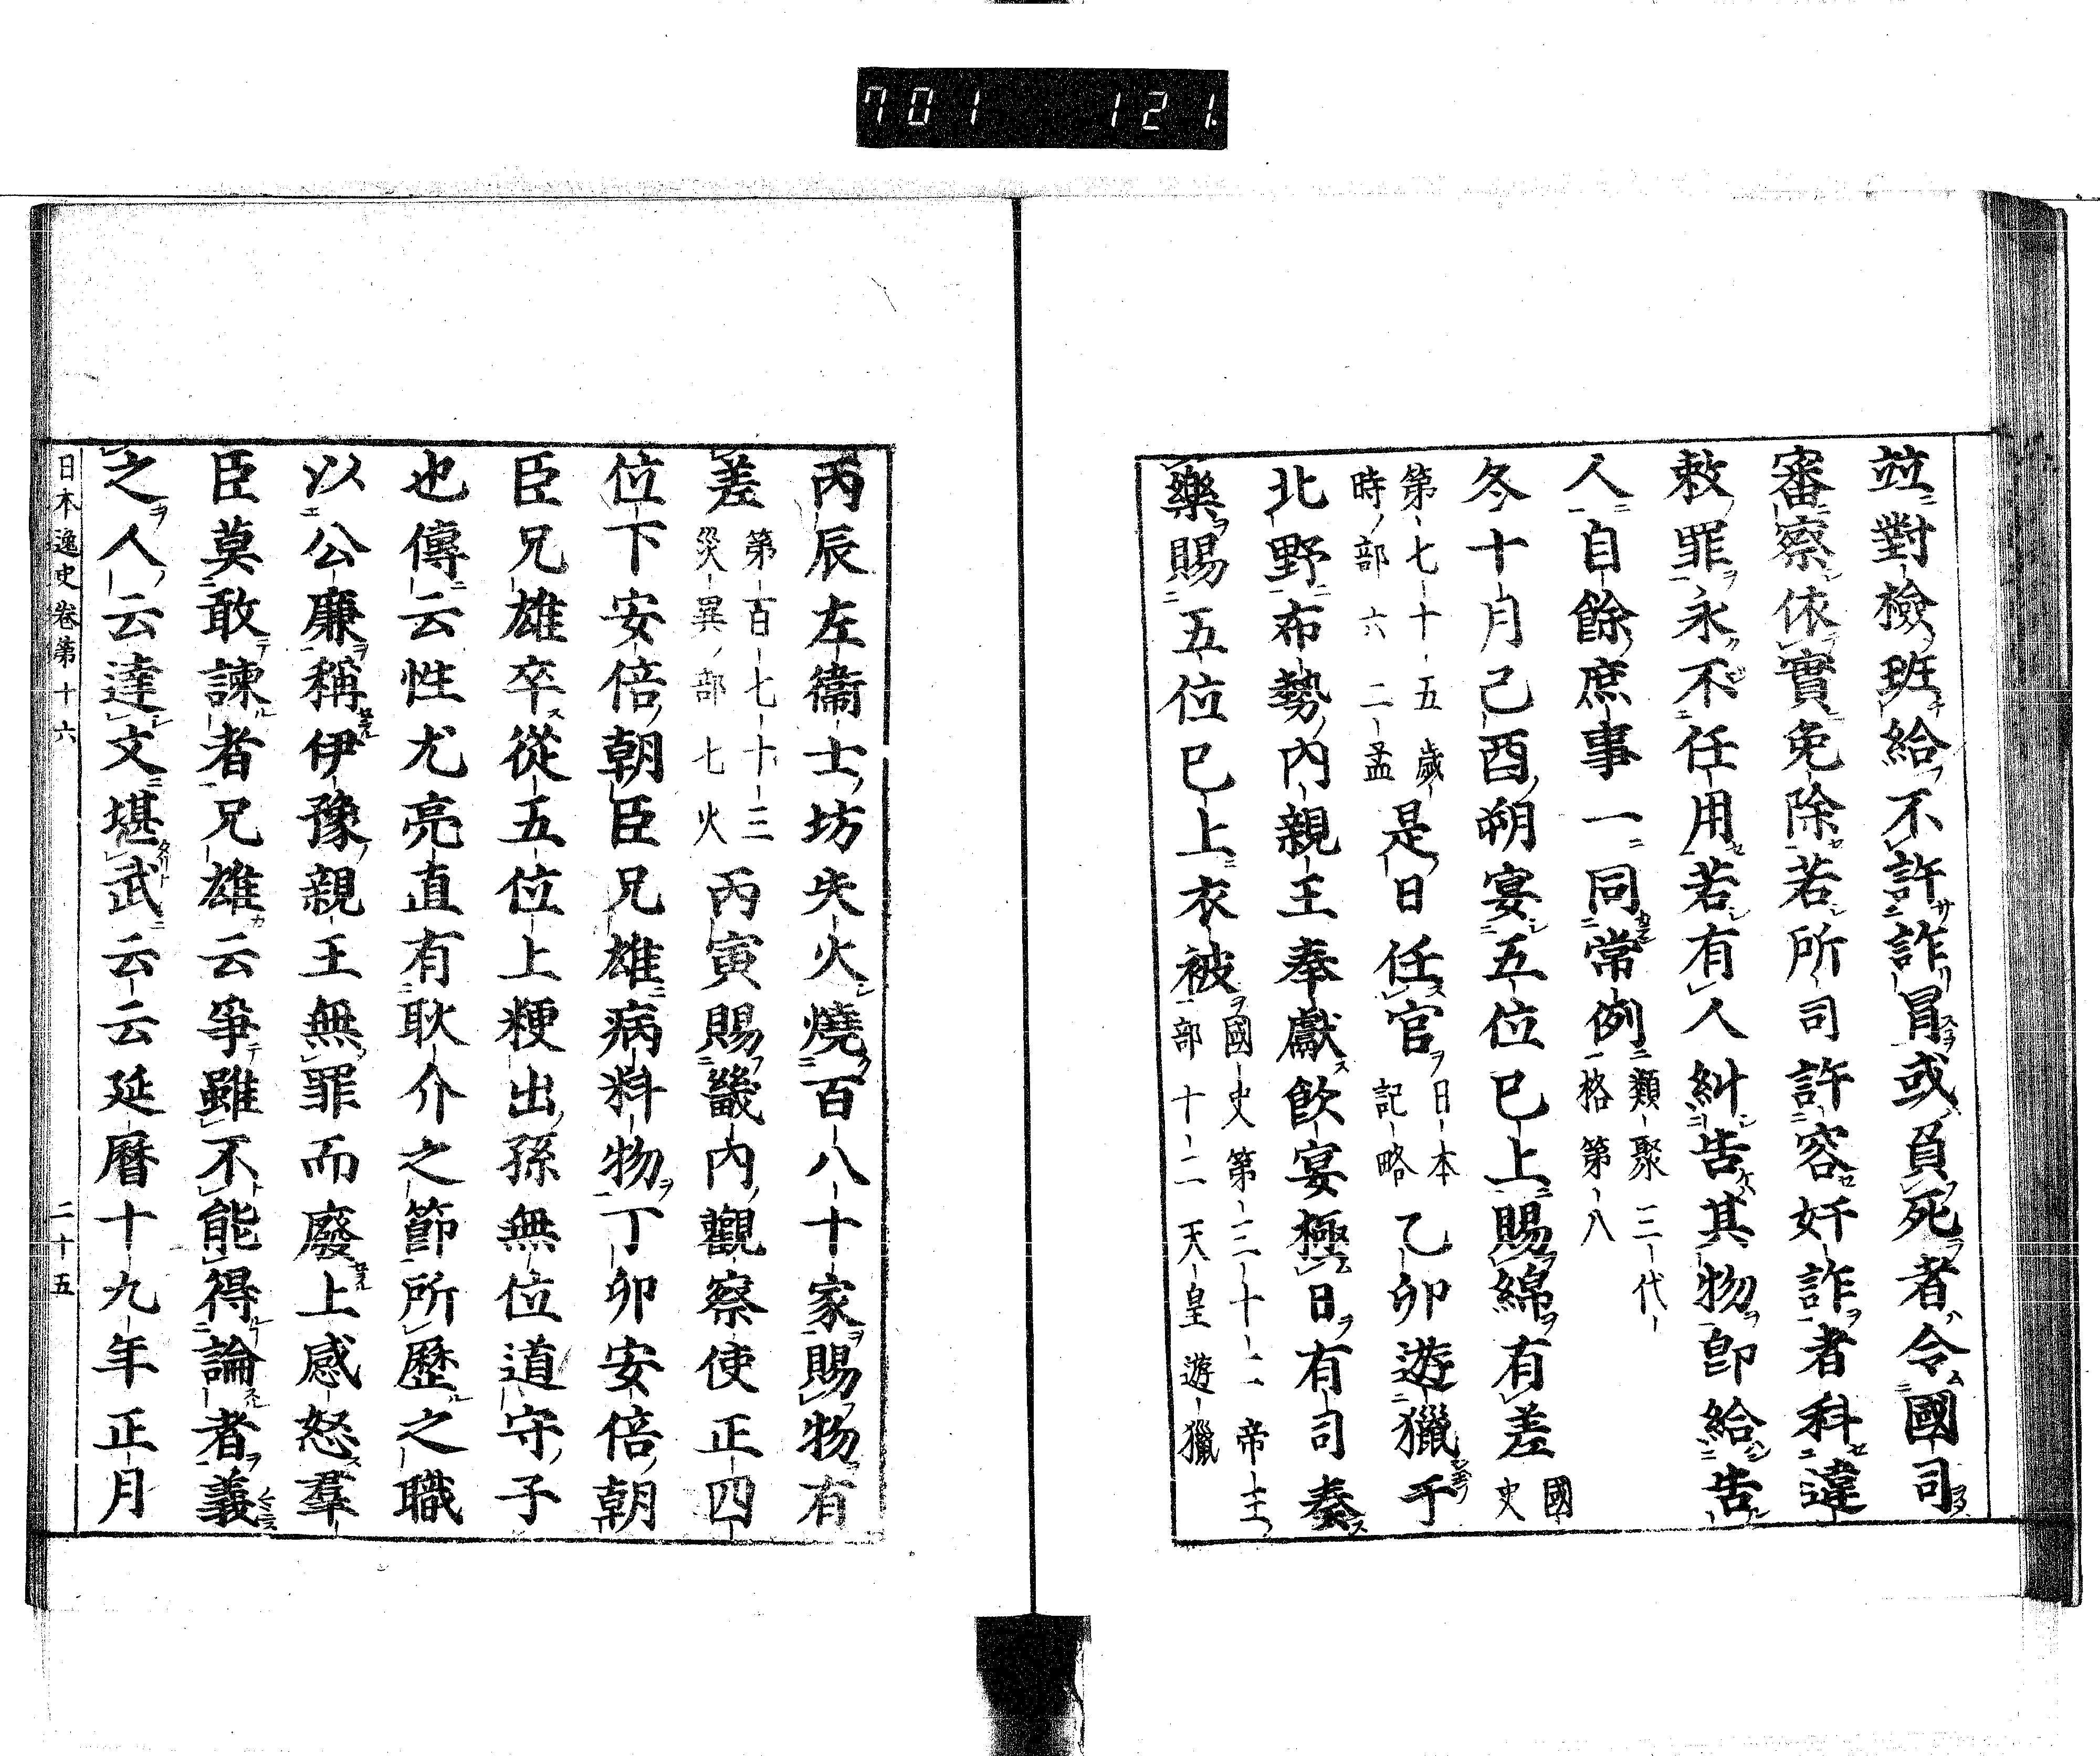 701 121
竝對檢班給不許詐冒或負死者令國司
審察依實免除若所司許容奸詐者科違
敕罪永不任用若有人糾告其物卽給告
人自餘庶事一同常例類聚三代
格第八
冬十月己酉朔宴五位已上賜綿有差國
史
第七十五歲
時部六二孟是日任官日本
記略乙卯遊獵于
北野布勢內親王奉獻飮宴極日有司奏
樂賜五位已上衣被國史第三十二帝王
部十二天皇遊獵
丙辰左衞士坊失火燒百八十家賜物有
差第百七十三
災異部七火丙寅賜畿內觀察使正四
位下安倍朝臣兄雄病料物丁卯安倍朝
臣兄雄卒從五位上粳出孫無位道守子
也傳云性尤亮直有耿介之節所歷之職
以公廉稱伊豫親王無罪而廢上感怒羣
臣莫敢諫者兄雄云爭雖不能得論者義
之人云達文堪武云云延曆十九年正月
日本逸史卷第十六 二十五